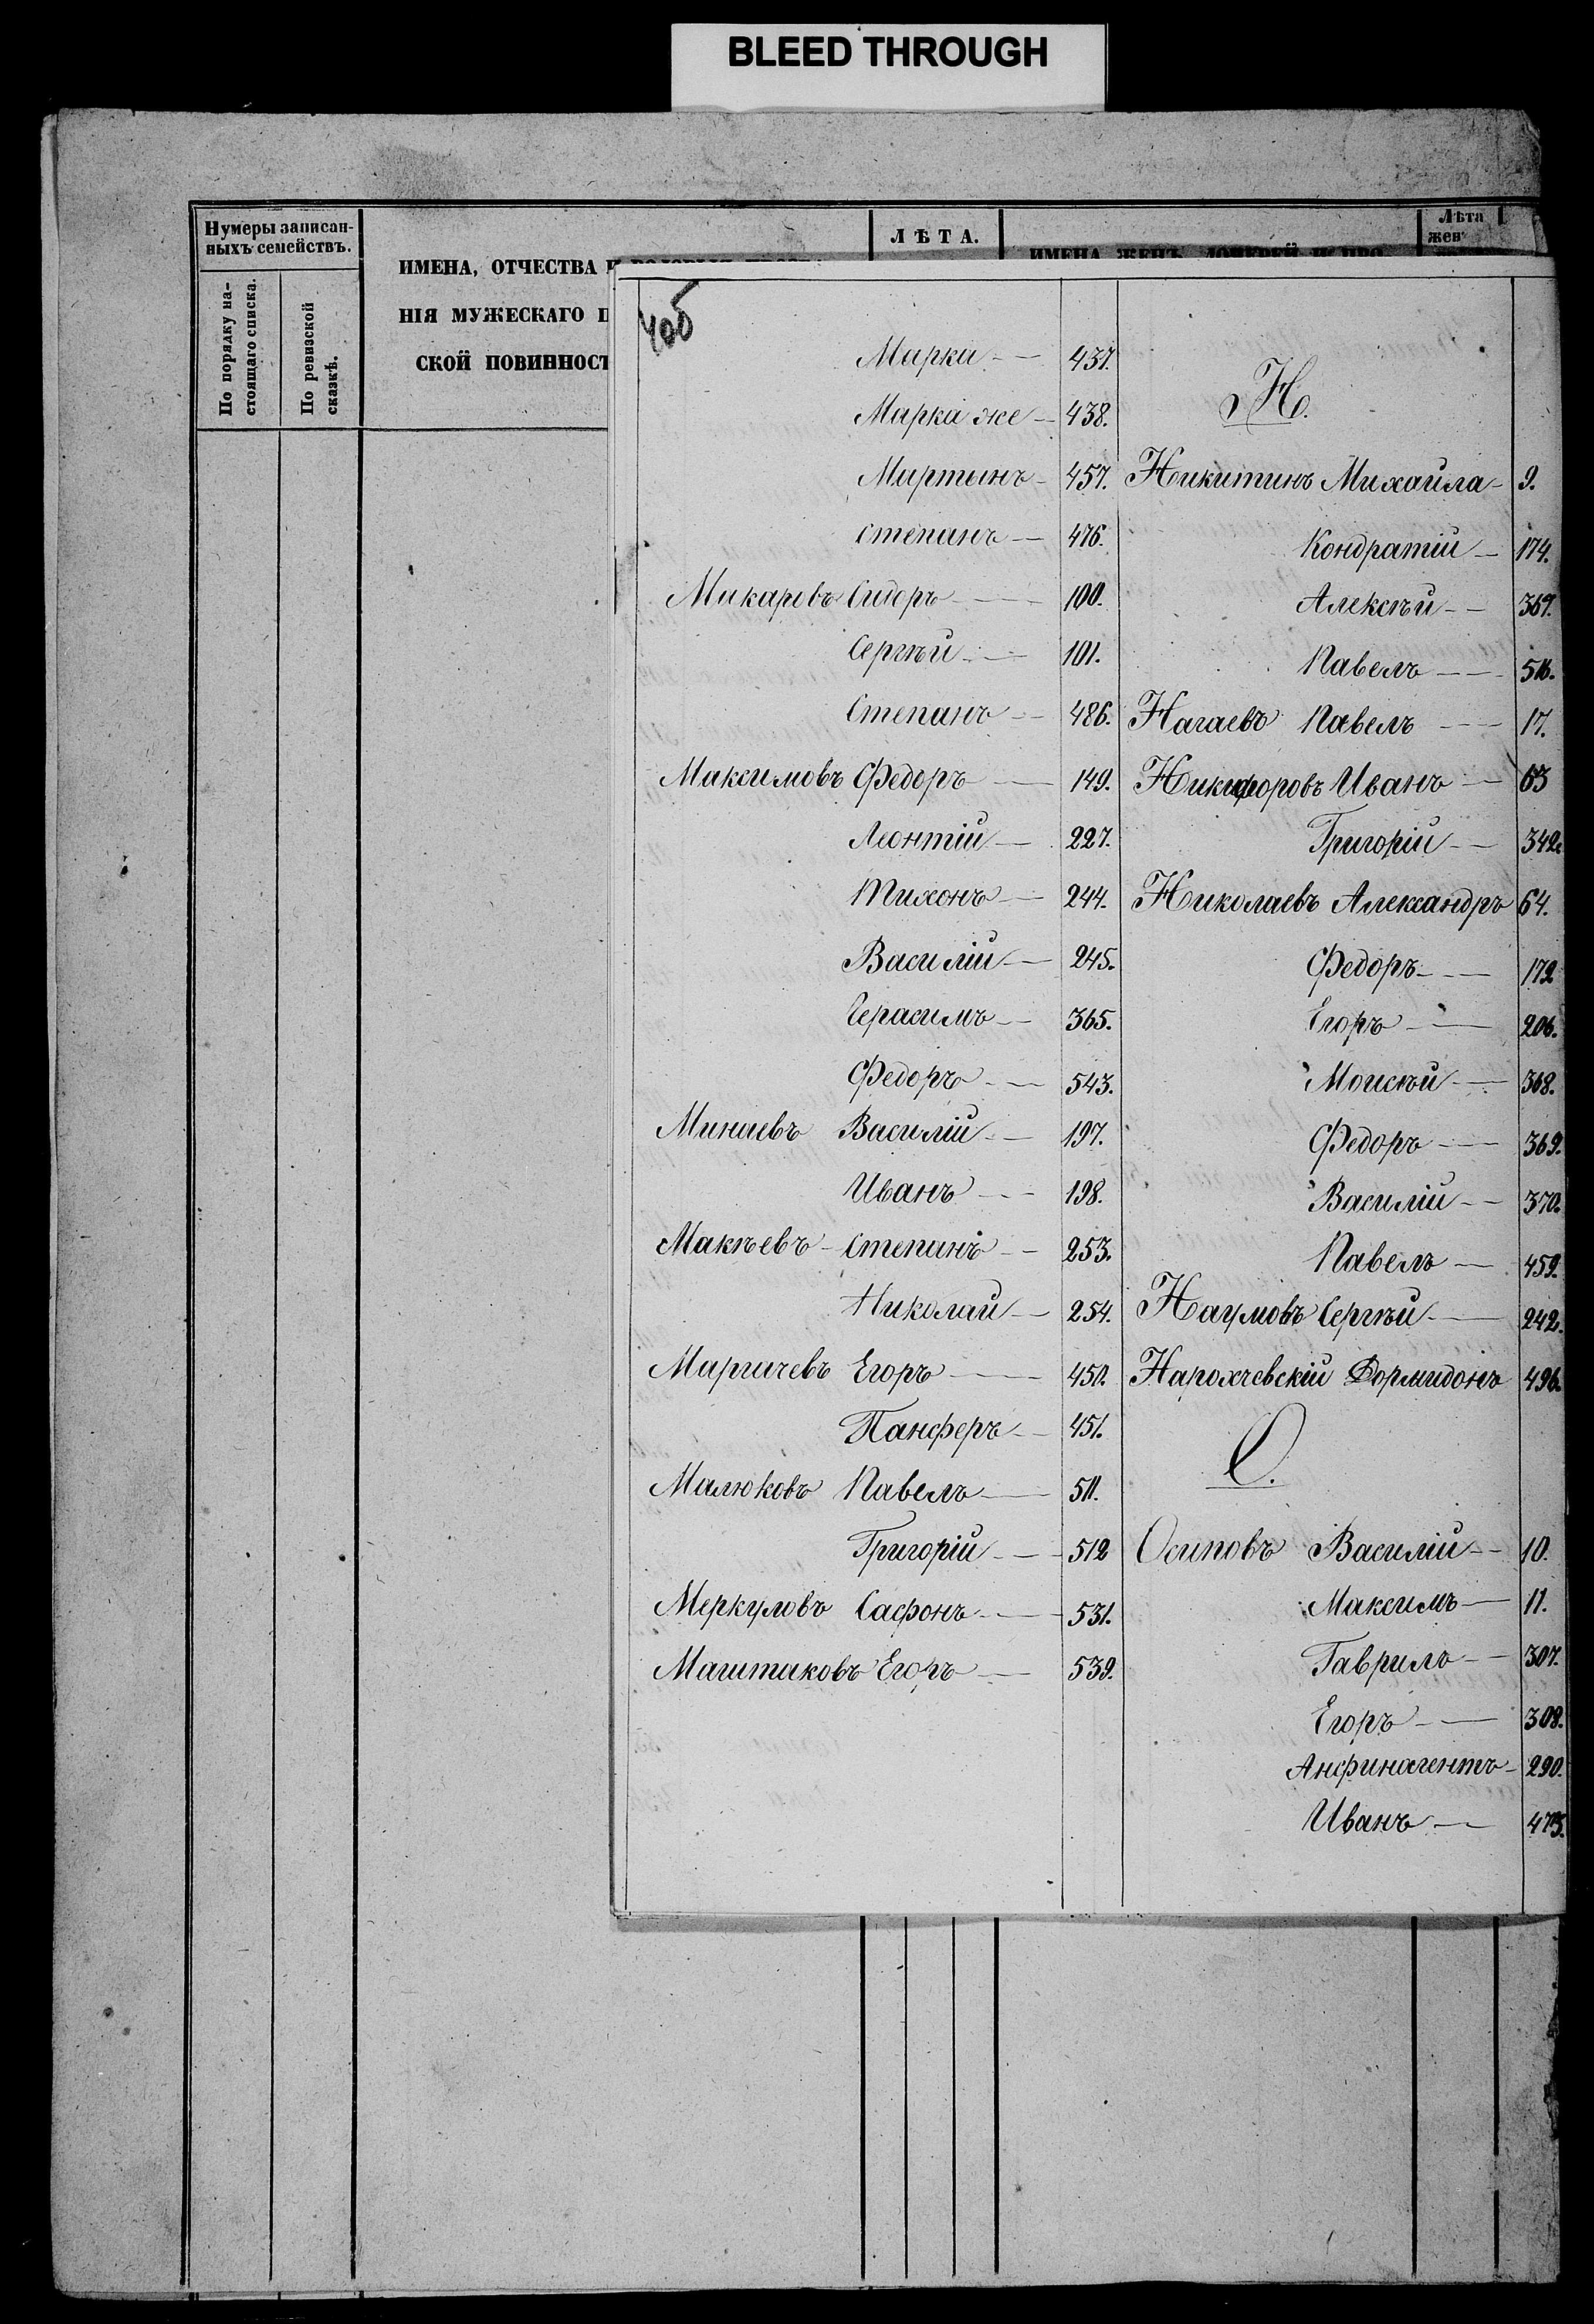 BLEED THROUGH
Нумеры записан-
ныхъ семействъ.
По порядку на-
стоящаго списка.
По ревизской
сказкѣ.
ИМЕНА, ОТЧЕСТВА
НІЯ МУЖЕСКАГО
СКОЙ ПОВИННОСТ
ЛѢТА.
ИМЕНА ЖЕНЪ, ДОЧЕРЕЙ
Лѣта
жен
Марка 437.
Марка же 438.
Мартынъ 457.
Степанъ 476.
Макаровъ Сидоръ 100.
Сергѣй 101.
Степанъ 486.
Максимовъ Федоръ 149.
Леонтій 227.
Тихонъ 244.
Василій 245.
Герасимъ 365.
Федоръ 543.
Минаевъ Василій 197.
Иванъ 198.
Макѣевъ Степанъ 253.
Николай 254.
Маричевъ Егоръ 450.
Панферъ 451.
Малюковъ Павелъ 511.
Григорій 512
Меркуловъ Сафонъ 531.
Маштаковъ Егоръ 539.
Н.
Никитинъ Михайла 9.
Кондратій 174.
Алексѣй
Павелъ
Нагаевъ Павелъ 17.
Никифоровъ Иванъ 63
Григорій 342.
Николаевъ Александръ 64.
Федоръ 172
Егоръ 206.
Моисѣй 368.
Федоръ 369.
Василій 370.
Павелъ 459.
Наумовъ Сергѣй 242.
Нарохчевскій Дормидонъ 496.
О.
Осиповъ Василій 10.
Максимъ 11.
Гаврилъ 307.
Егоръ 308.
Анфиногентъ 290.
Иванъ 473.